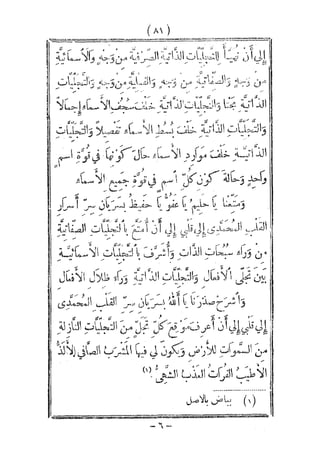 (٨١)
إلى أن نهيأ للتجليات الذاتية الصرفية من وجه والأسمائية
من وجه والصفاتية من وجه والفعلية من وجه والتجليات
الذاتية بحتا والتجليات الذاتية خلف سجف الأسماء إجمالاً
والتجليات الذاتية خلف بسط الأسماء تفصيلاً والتجليات
الذاتية خلف موارد الأسماء حال كونها في قوة اسم
واحد وحالة كون كل اسم في قوة جميع الأسماء
ومتعنا يا حليم يا عفو يا حفيظ بسريان سر أسرار
القلب المحمدى إلى قلبي إلى أن أمتع بالتجليات الصفاتية
من وراء سبحات الذات وأشرف بالتجليات الأسمائية
بين تجلى الأفعال والتجليات الذاتية وراء ظلال الأفعال
وأشرح صدرنا يا ألله بسريان سر القلب المحمدى
إلى قلبي إلى أن أعرف موقع كل تجل من التجليات النازلة
من السموات للأرض ويكون لي فيها المشرب الصافي الألذ
الأطيب الفرات العذب الشهى (١)
(١) بياض بالاصل
- ٦ -